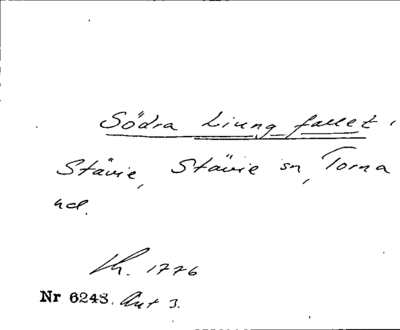 Södra Liung fallet,
Stävie, Stävie sn, Torna
hd.
Lh. 1776
Nr 6243. Akt 3.